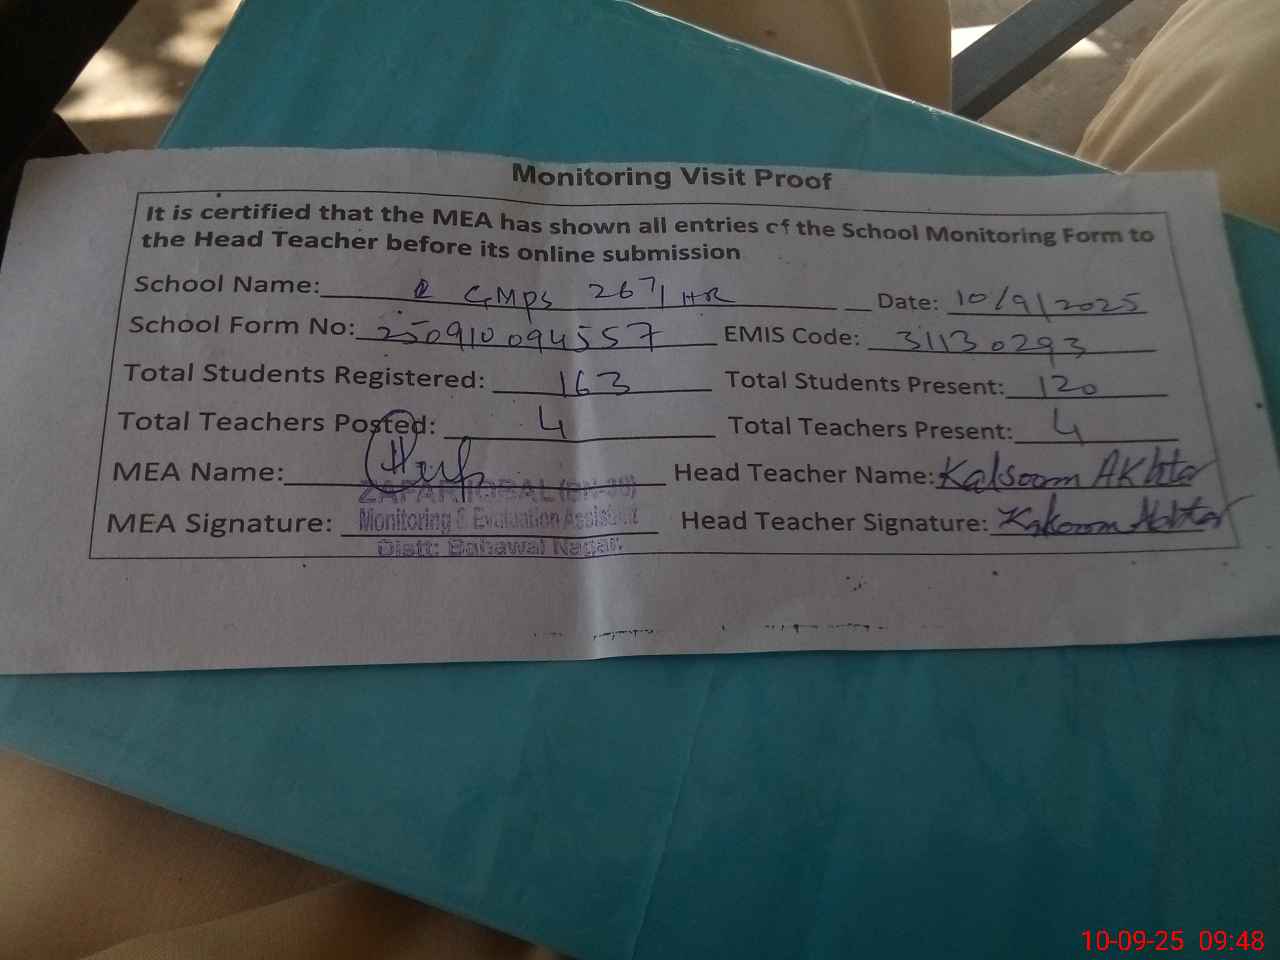 Monitoring Visit Proof
It is certified that the MEA has shown all entries of the School Monitoring Form to
the Head Teacher before its online submission
School Name: GMPS 267/HR Date: 10/9/2025
School Form No: 250910094557 EMIS Code: 31130293
Total Students Registered: 163 Total Students Present: 120
Total Teachers Posted: 4 Total Teachers Present: 4
MEA Name: Head Teacher Name: Kalsoom Akhtar
ZAFAR IQBAL (BN-36)
MEA Signature: Monitoring & Evaluation Assistant Head Teacher Signature: Kalsoom Akhtar
Distt: Bahawal Nagar.
10-09-25 09:48